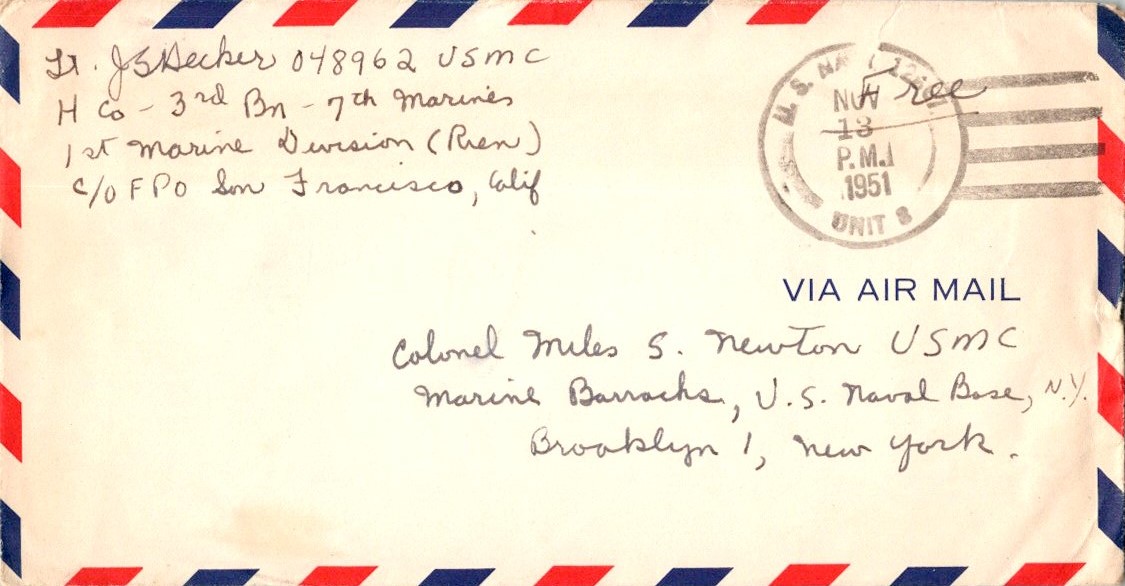 Lt. J S Hecker 048962 USMC
H Co - 3rd Bn - 7th Marines
1st Marine Division (Rien)
c/o FPO San Francisco, Calif
U. S. NAVY
Free
NOV
13
P.M.
1951
UNIT 8
VIA AIR MAIL
Colonel Miles S. Newton USMC
Marine Barracks, U.S. Naval Base, N.Y.
Brooklyn 1, New York.